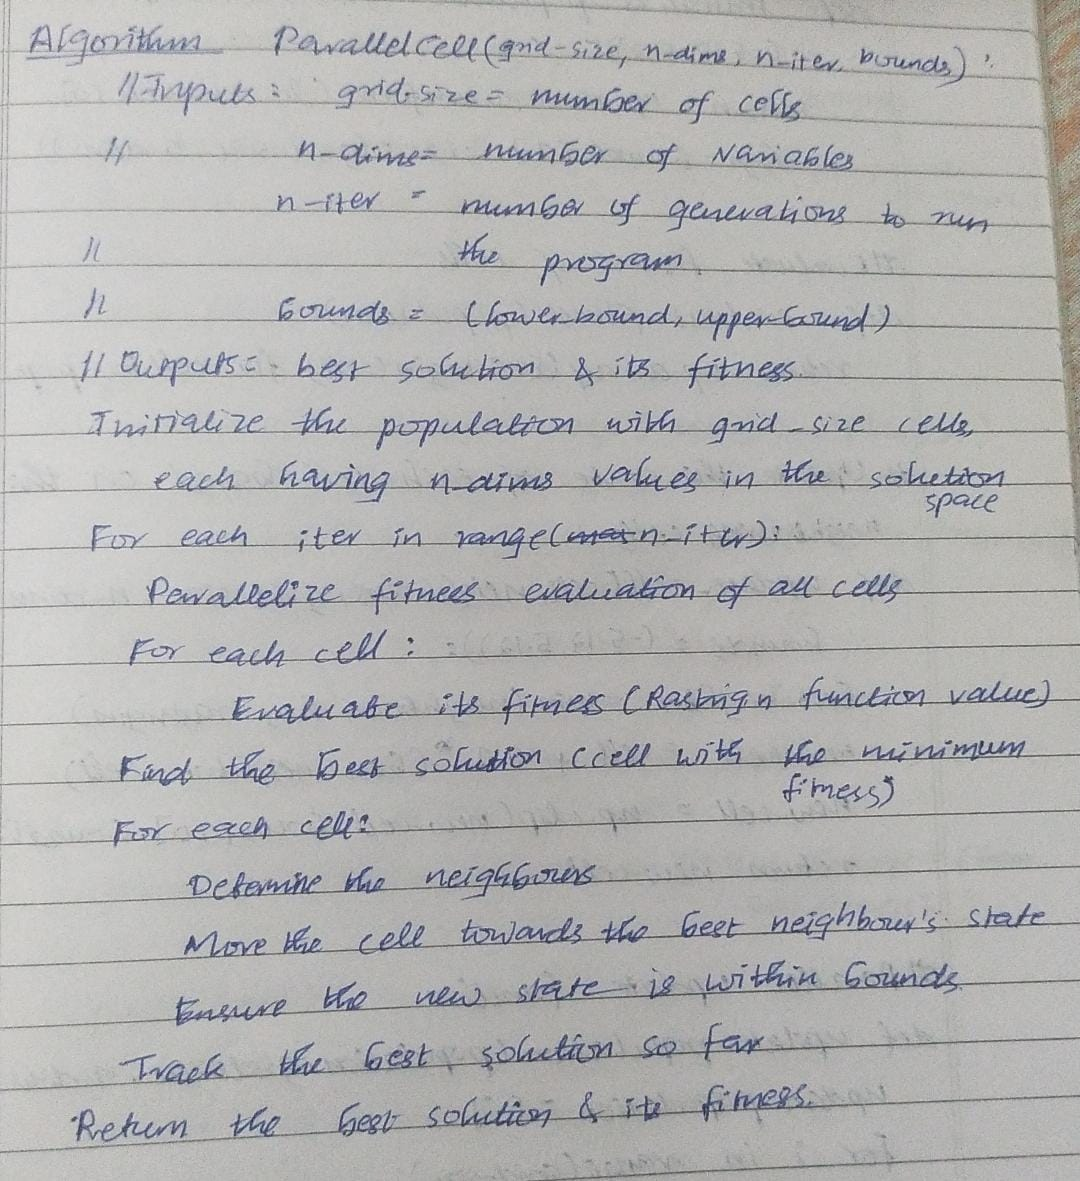 Algorithm ParallelCell(grid-size, n-dims, n-iter, bounds):
// Inputs: grid-size = number of cells
// n-dims = number of variables
n-iter = number of generations to run
// the program
// bounds = (lower-bound, upper-bound)
// Outputs: best solution & its fitness.
Initialize the population with grid-size cells,
each having n-dims values in the solution
space
For each iter in range(n-iter):
Parallelize fitness evaluation of all cells
For each cell:
Evaluate its fitness (Rastrign function value)
Find the best solution (cell with the minimum
fitness)
For each cell:
Determine the neighbours
Move the cell towards the best neighbour's state
Ensure the new state is within bounds.
Track the best solution so far
Return the best solution & its fitness.